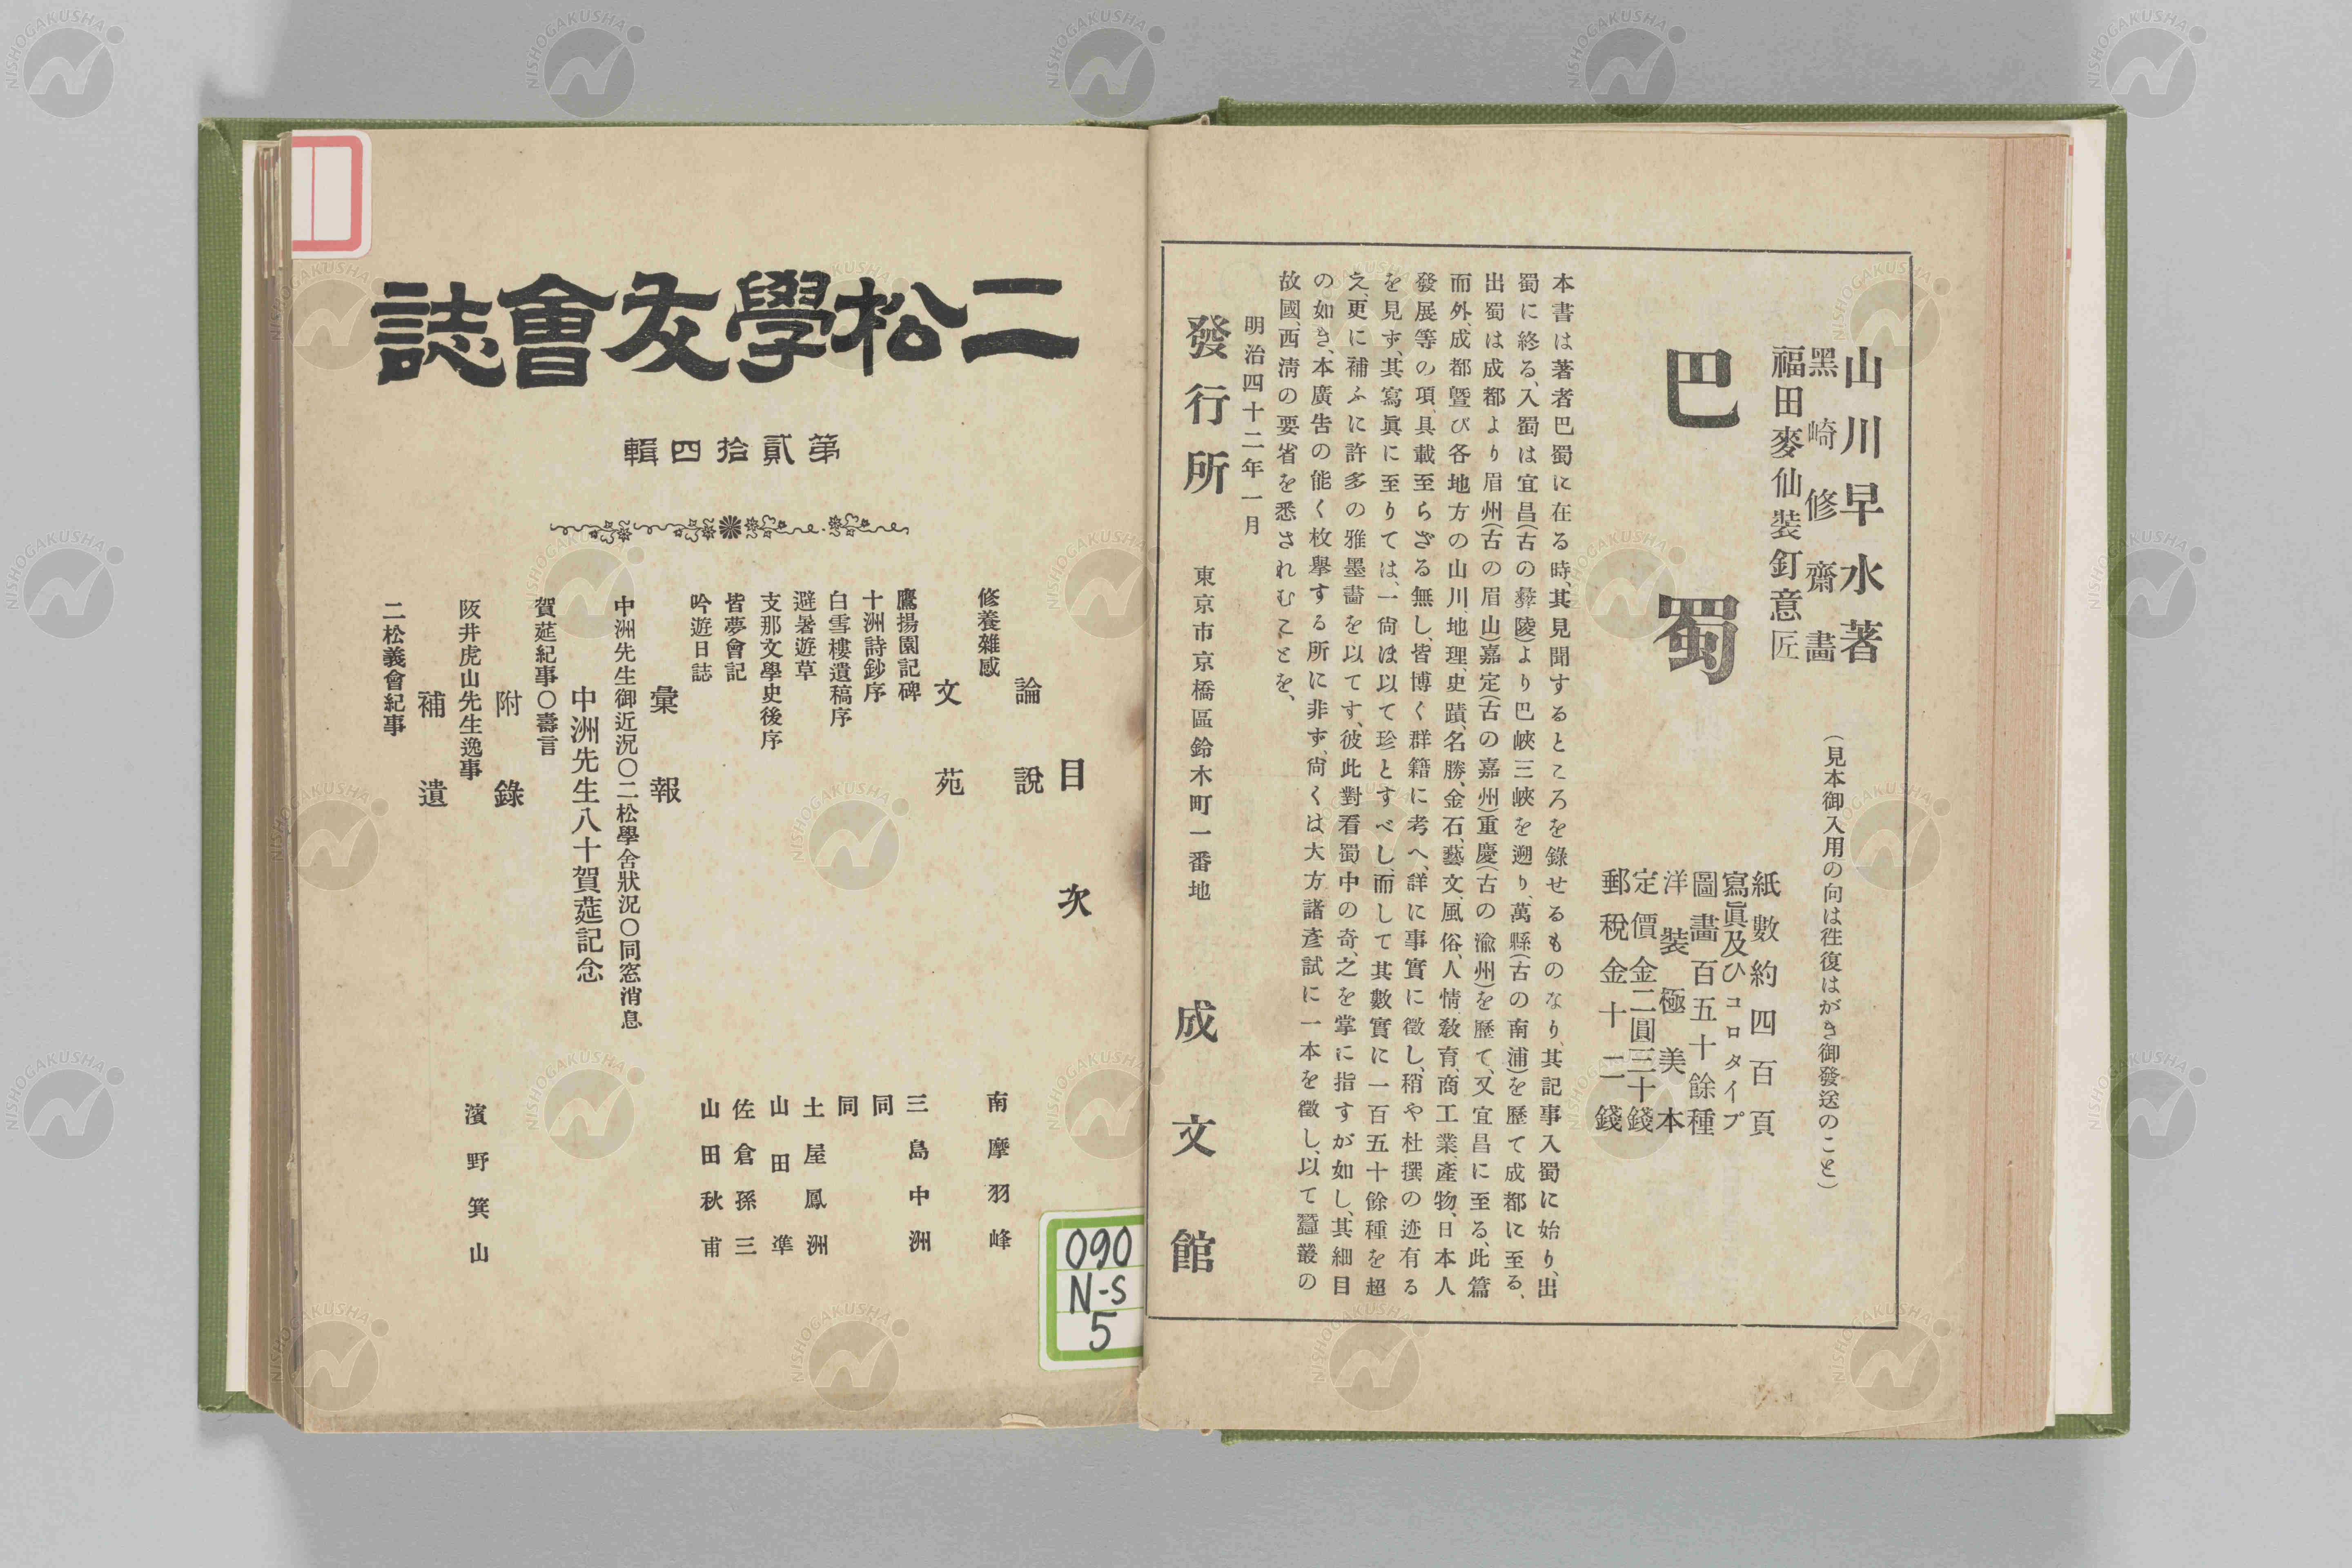 山川早水著
黑崎修齋畫
福田麥仙裝釘意匠
巴蜀
（見本御入用の向は徃復はがき御發送のこと）
紙數約四百頁
寫眞及ひコロタイプ
圖畵百五十餘種
洋裝極美本
定價金二圓三十錢
郵稅金十二錢
本書は著者巴蜀に在る時、其見聞するところを錄せるものなり、其記事入蜀に始り、出
蜀に終る、入蜀は宜昌（古の彜陵）より巴峽三峽を遡り、萬縣（古の南浦）を歷て成都に至る、
出蜀は成都より眉州（古の眉山）嘉定（古の嘉州）重慶（古の渝州）を歷て、又宜昌に至る、此篇
而外、成都曁び各地方の山川、地理、史蹟、名勝、金石、藝文、風俗、人情、敎育、商工業、產物、日本人
發展等の項、具載至らざる無し、皆博く群籍に考へ、詳に事實に徵し、稍や杜撰の迹有る
を見ず、其寫眞に至りては、一尙ほ以て珍とすべし、而して其數實に一百五十餘種を超
え、更に補ふに許多の雅墨畵を以てす、彼此對看蜀中の奇、之を掌に指すが如し、其細目
の如き、本廣告の能く枚擧する所に非ず、尙くは大方諸彥試に一本を徵し、以て蠶叢の
故國、西淸の要省を悉されむことを、
明治四十二年一月
發行所 東京市京橋區鈴木町一番地 成文館
二松學友會誌
第貳拾四輯
目次
論說
修養雜感 南摩羽峰
文苑
鷹揚園記碑 三島中洲
十洲詩鈔序 同
白雪樓遺稿序 同
避暑遊草 土屋鳳洲
支那文學史後序 山田準
皆夢會記 佐倉孫三
吟遊日誌 山田秋甫
彙報
中洲先生御近況〇二松學舍狀況〇同窓消息
中洲先生八十賀莚記念
賀莚紀事〇壽言
附錄
阪井虎山先生逸事 濱野箕山
補遺
二松義會紀事
090
N-S
5
NISHOGAKUSHA